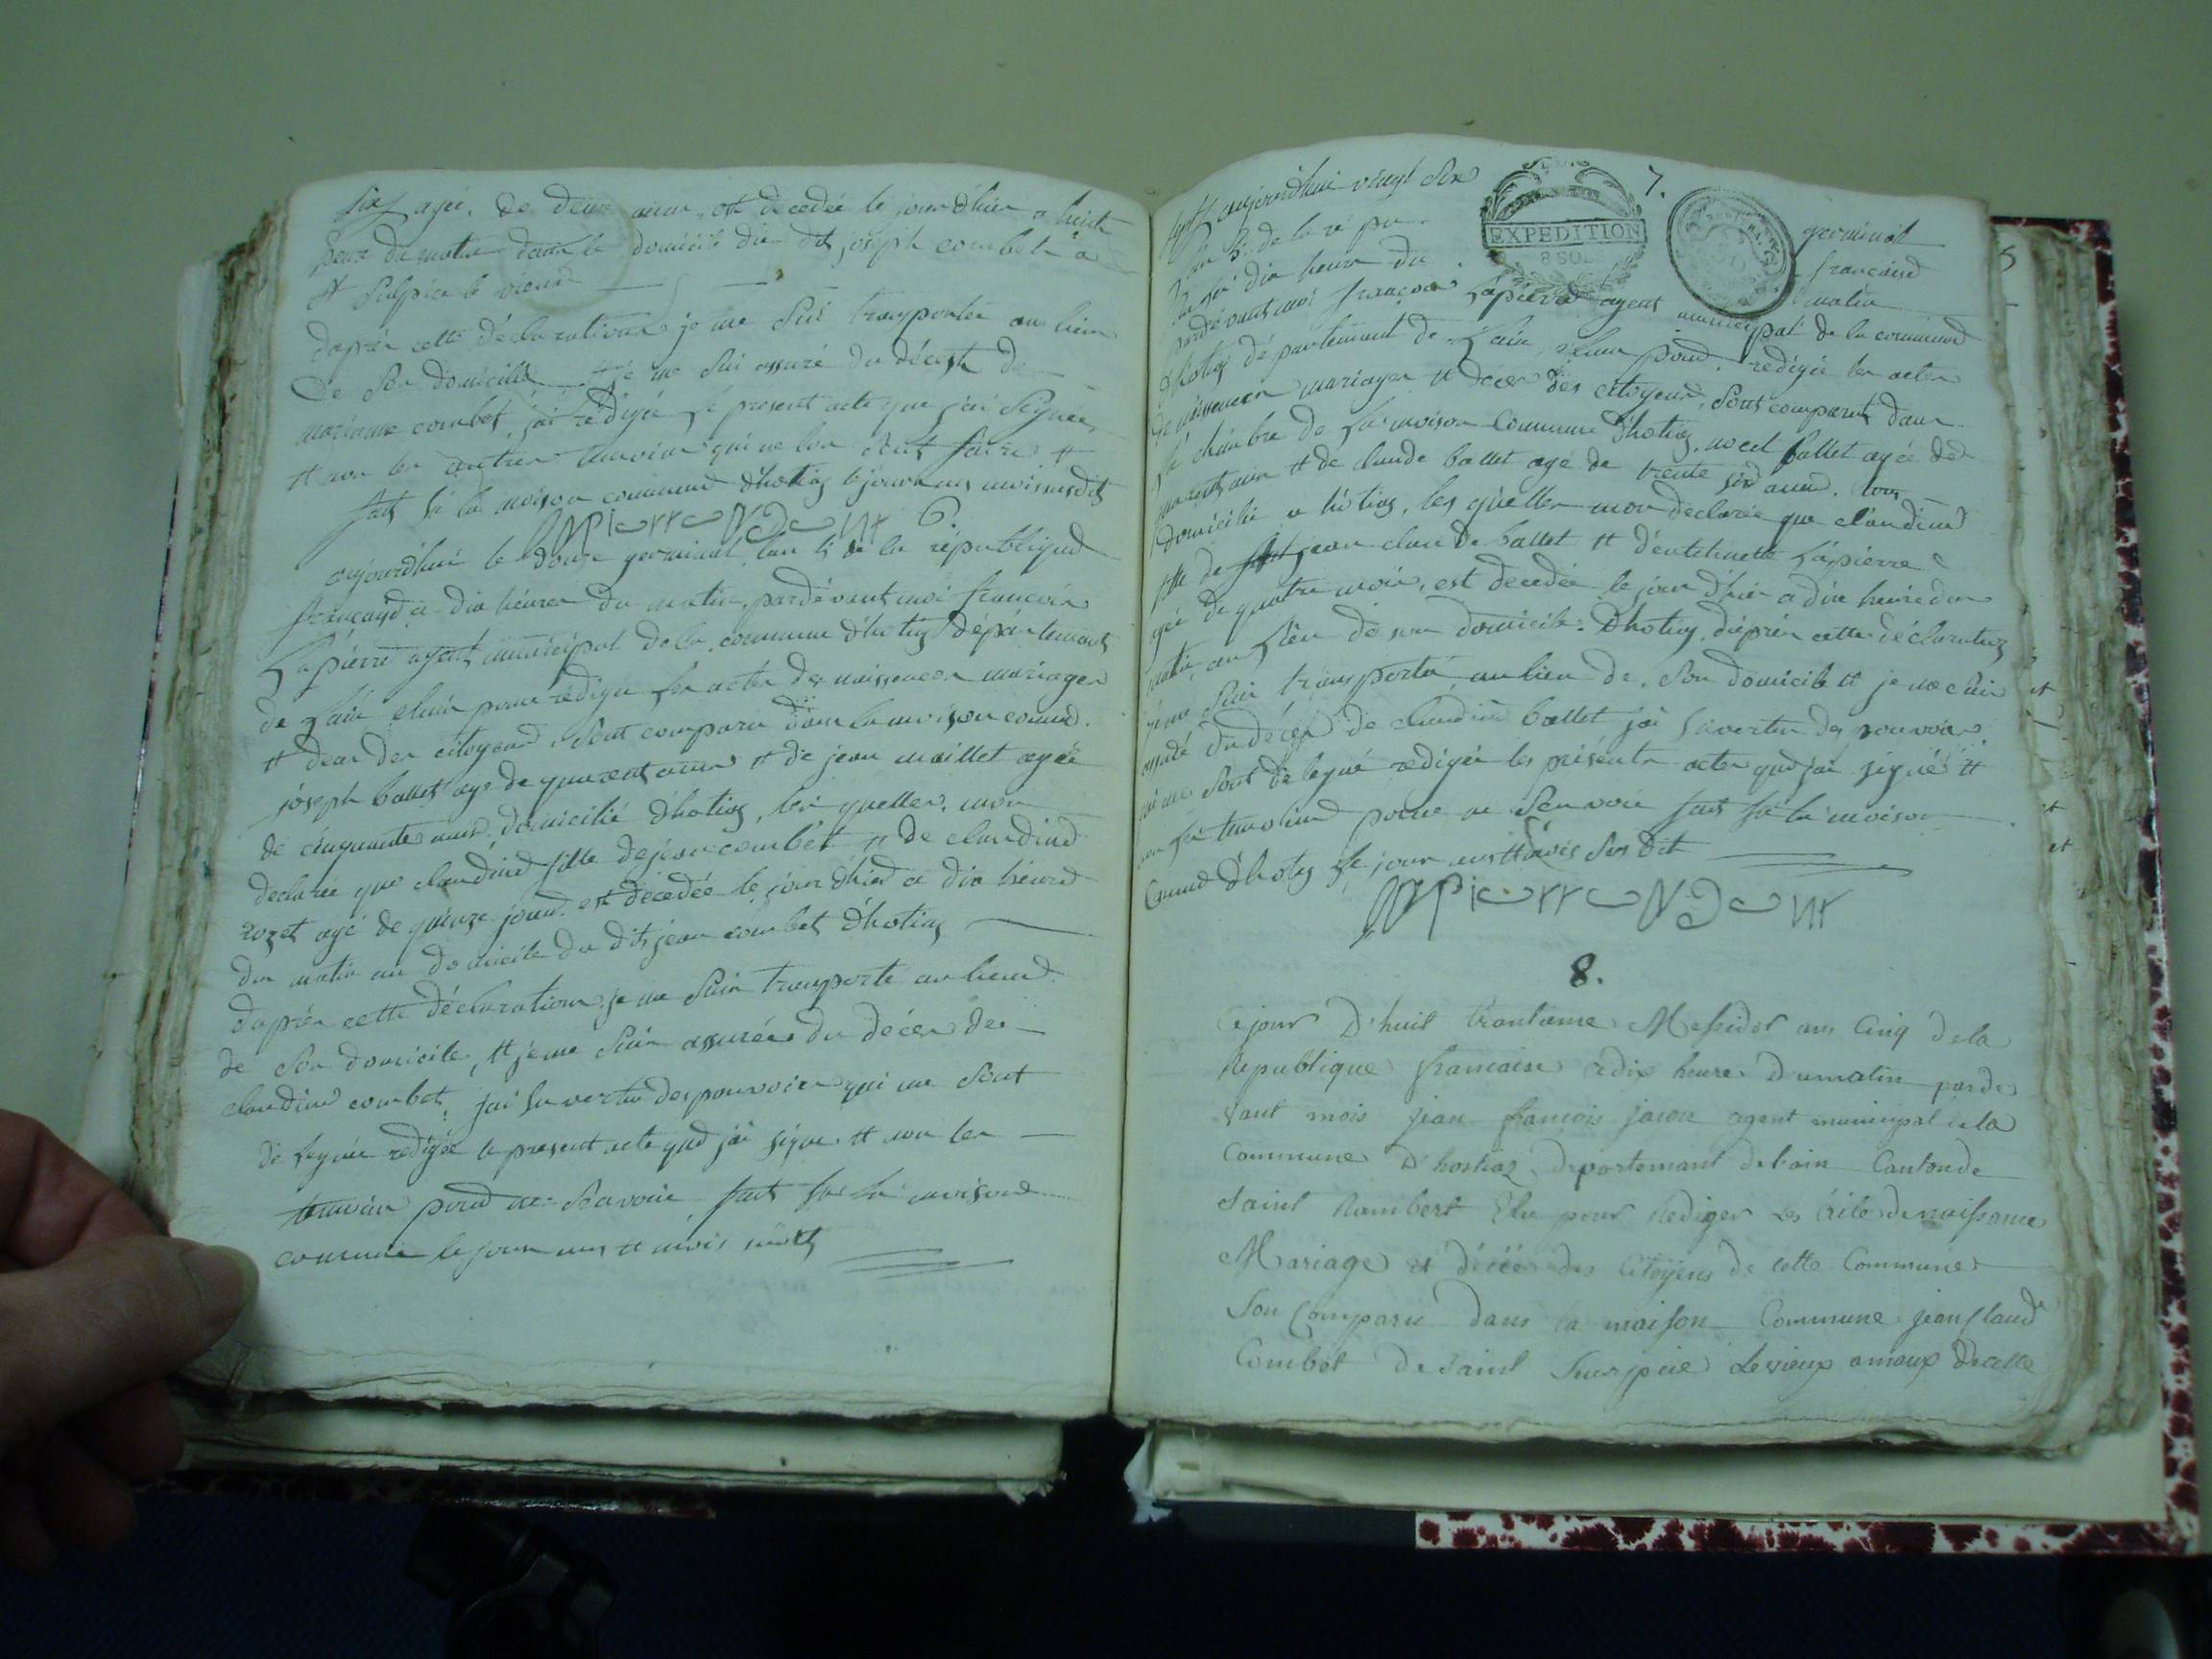 agée de deux ans est decedée le jour dhier a huit
heure du matin dans le domicile du dit joseph combet a
st Sulpice le vieux
daprès cette déclaration je me suis transportée au lieu
de son domicile et je me suis assuré du décest de
marianne combet, jai rédigée le present acte que jai signée
et non les autres temoins qui ne lon sçut faire
fait à la maison commune dhotiaz le jour an mois susdits
6.
aujourdhui le douze germinal lan 5 de la république
françaisse a dix heures du matin, pardevant moi françois
Lapierre agent municipal de la commune dhotiaz département
de lain eluie pour rédiger les actes des naissances mariages
et deces des citoyens, sont comparu dans la maison commd.
joseph ballet age de quarent ans et de jean maillet agée
de cinquante ans domicilié dhotiaz, les quelles mon
declarée que claudine fille de jean combet et de claudine
rozet agé de quinze jours est décedée le jour dhier a dix heures
du matin au domicile du dit jean combet dhotiaz
daprès cette déclaration je me suis transporte au lieux
de son domicile, et je me suis assurée du déces de
claudine combet, jai en vertu des pouvoirs qui me sont
deleguée redigée le present acte que jai signe et non les
temoin pour ne savoir fait à la maison
commune le jour an et mois susdit
7.
aujourdhui vingt six germinal
lan 5. de la répu française
a dix heures du matin
EXPEDITION
8 SOLS
pardevant moi françois Lapierre agent municipal de la commune
dhotiaz département de Lain, elue pour rédigée les actes
de naissances mariages et deces des citoyens, sont comparut dans
la chambre de la maison commune dhotiaz, noel ballet agée de
quarent ans et de claude ballet agé de trente six ans. tous
domicilié a hotiaz, les quelles mon declarée que claudine
fille de jean claude ballet et d'entelmette Lapierre
agée de quatre mois, est decedée le jour dhier a dix heure du
matin au lieu de son domicile dhotiaz, daprès cette déclaration
je me suis transporté au lieu de son domicile et je me suis
assuré du déces de claudine ballet jai en vertu des pouvoirs
qui me sont delegué redigée les présents actes que jai signé et
non les temoins pour ne savoir fait à la maison
commune dhotiaz le jour ans et mois sus dit
8.
Cejour D'huit trantieme Messidor ans Cinq de la
Republique francaise a dix heures Dumatin parde
vant mois jean francois jacou agent municipal de la
Commune D'hostiaz departemant de lain Cantonde
saint Rambert Elu pour Rediger Les Acte de naissance
Mariage et décée des Citoyens de cette Commune
Son Comparu dans la maison Commune jean claude
Combet De saint Surpice Levieux amaux Decette